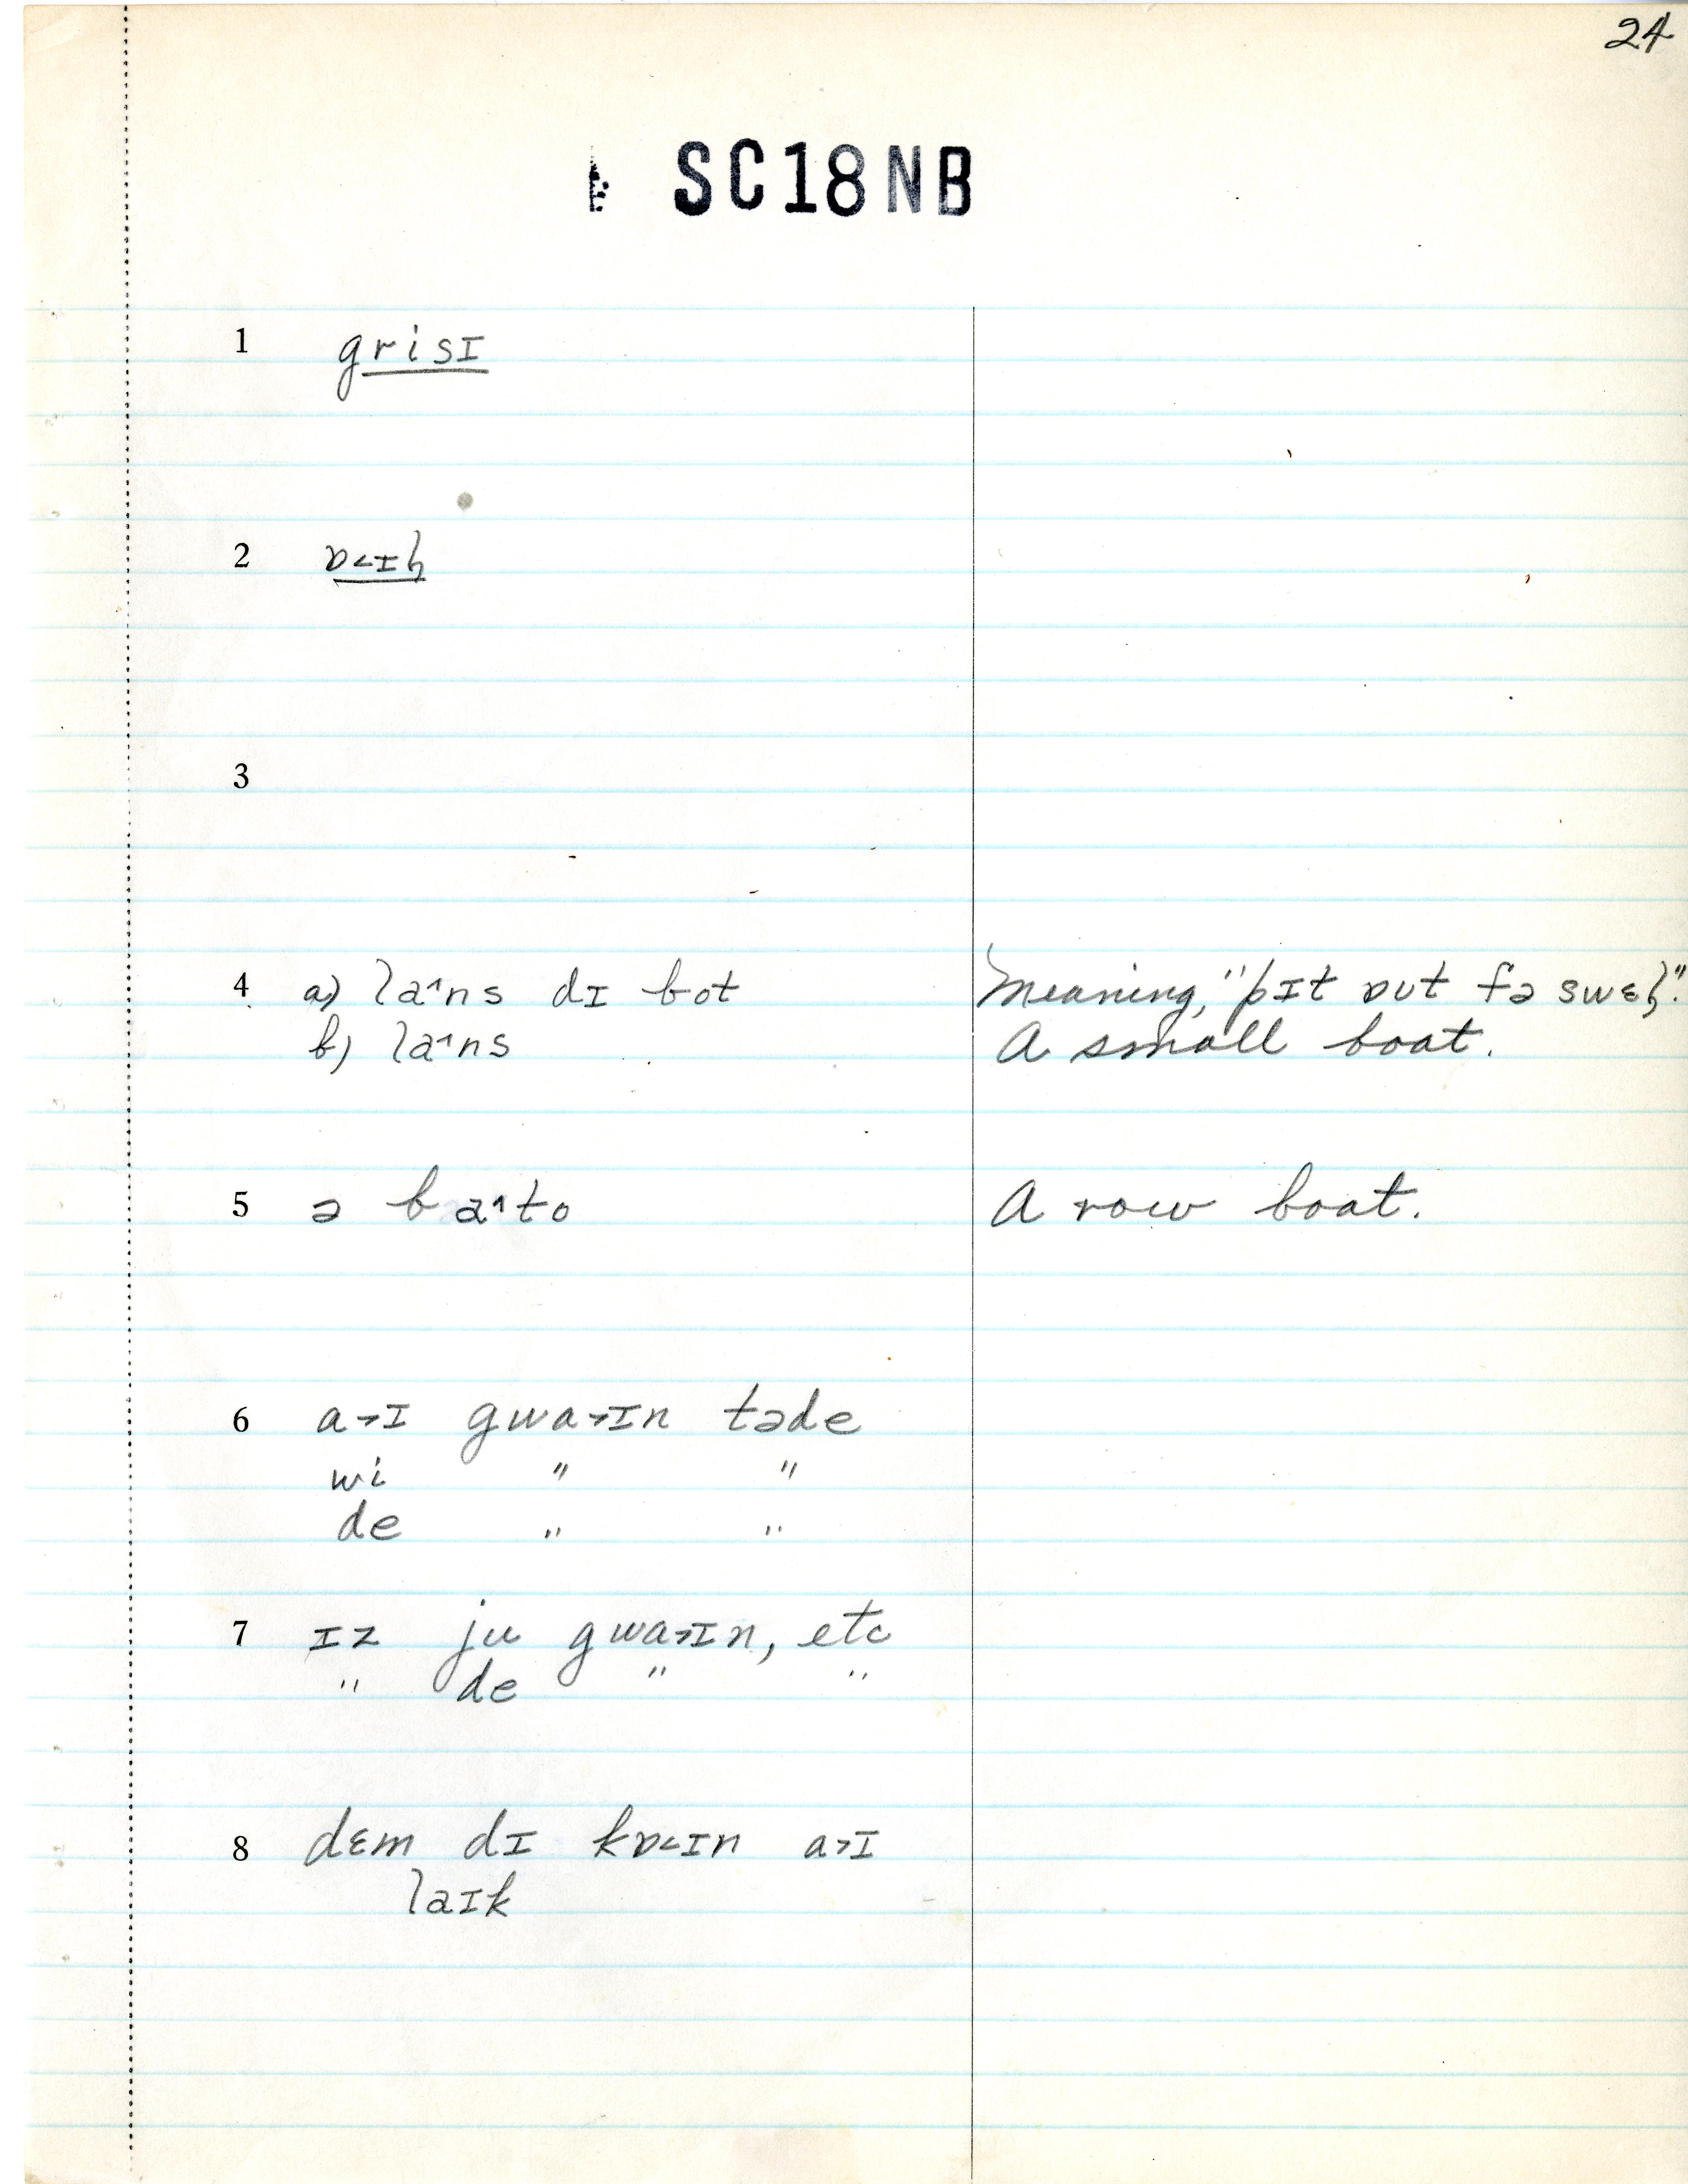 24
SC18NB
1 grisɪ
2 ɒ˂ɪl̡
3
4 a) la˄ns dɪ bot Meaning, "pɪt ɒut fə swɛl̡".
b) la˄ns A small boat.
5 ə ba˄to A row boat.
6 a˃ɪ gwa˃ɪn təde
wi " "
de " "
7 ɪz ju gwa˃ɪn, etc
" de " "
8 dɛm dɪ kɒ˂ɪn a˃ɪ
laɪk